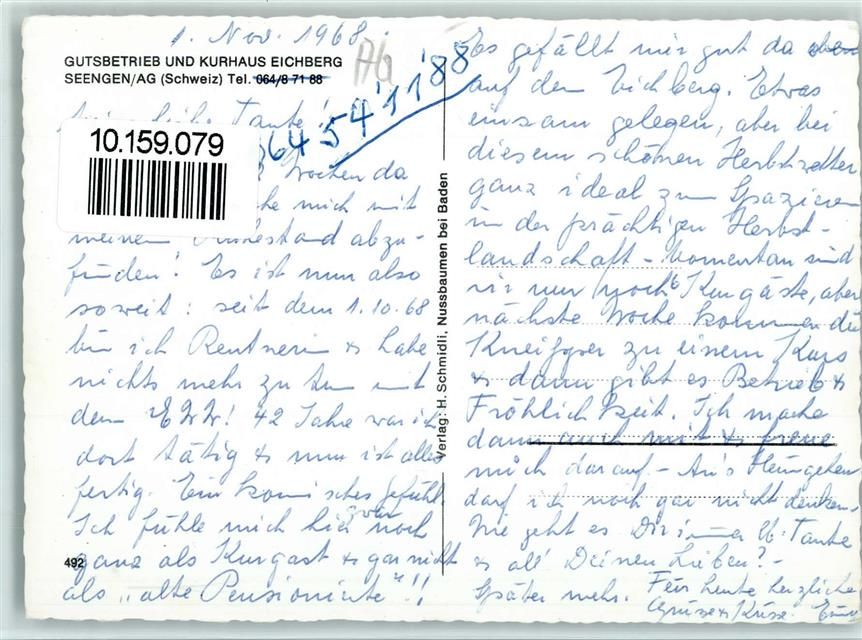 1. Nov. 1968.
GUTSBETRIEB UND KURHAUS EICHBERG
SEENGEN/AG (Schweiz) Tel. 064/8 71 88
AG
64 54'11'88
Tante!
10.159.079
Wochen da
mich mit
meinem Ruhestand abzu-
finden! Es ist nun also
soweit: seit dem 1.10.68
bin ich Rentnerin & habe
nichts mehr zu tun mit
dem EWZ! 42 Jahre war ich
dort tätig & nun ist alles
fertig. Ein komisches Gefühl
Ich fühle mich hier zwar noch
ganz als Kurgast & gar nicht
als "alte Pensionierte"!!
492
Verlag: H. Schmidli, Nussbaumen bei Baden
Es gefällt mir gut da oben
auf dem Eichberg. Etwas
einsam gelegen, aber bei
diesem schönen Herbstwetter
ganz ideal zum Spazieren
in der prächtigen Herbst-
landschaft - Momentan sind
wir nur noch 6 Kurgäste, aber
nächste Woche kommen die
Kneippger zu einem Kurs
& dann gibt es Betrieb &
Fröhlichkeit. Ich mache
dann auch mit & freue
mich darauf - An's Heimgehen
darf ich noch gar nicht denken.
Wie geht es Dir immer lb. Tante
& all' Deinen Lieben? -
Später mehr. Für heute herzliche
Grüsse & Küsse.